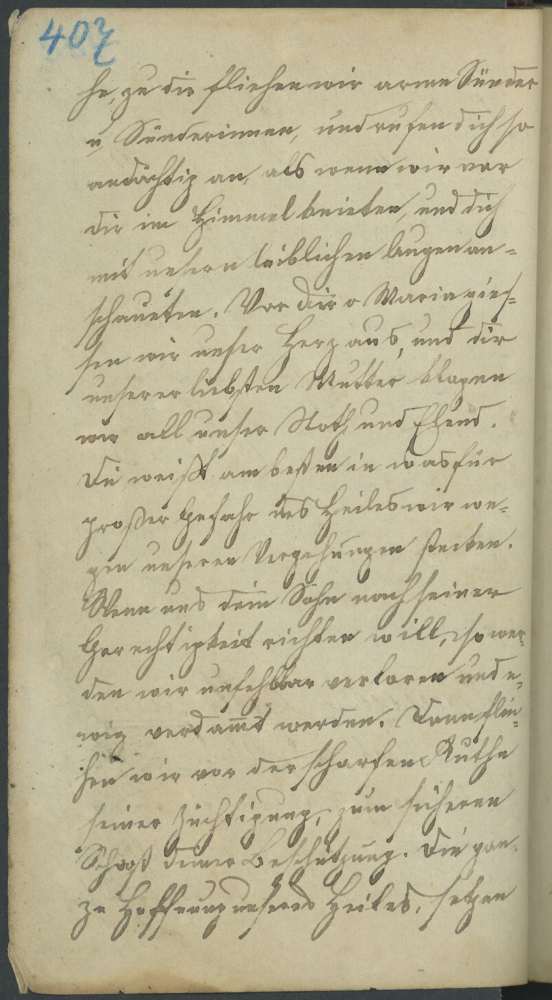 407
he, zu dir fliehen wir arme Sünder
u. Sünderinnen, und rufen dich so
andächtig an, als wenn wir vor
dir im Himmel knieten, und dich
mit unsern leiblichen Augen an-
schaueten. Vor dir o Maria gies-
sen wir unser Herz aus, und dir
unserer liebsten Mutter klagen
wir all unser Noth und Elend.
Du weißt am besten in was für
großer Gefahr des Heiles wir we-
gen unseren Vergehungen stecken.
Wenn uns dein Sohn nach seiner
Gerechtigkeit richten will, so wer-
den wir unfehlbar verloren und e-
wig verdamt werden. Dann flie-
hen wir vor der scharfen Ruthe
seiner Züchtigung, zum sicheren
Schooß deiner Beschützung. Die gan-
ze Hoffnung unseres Heiles, setzen